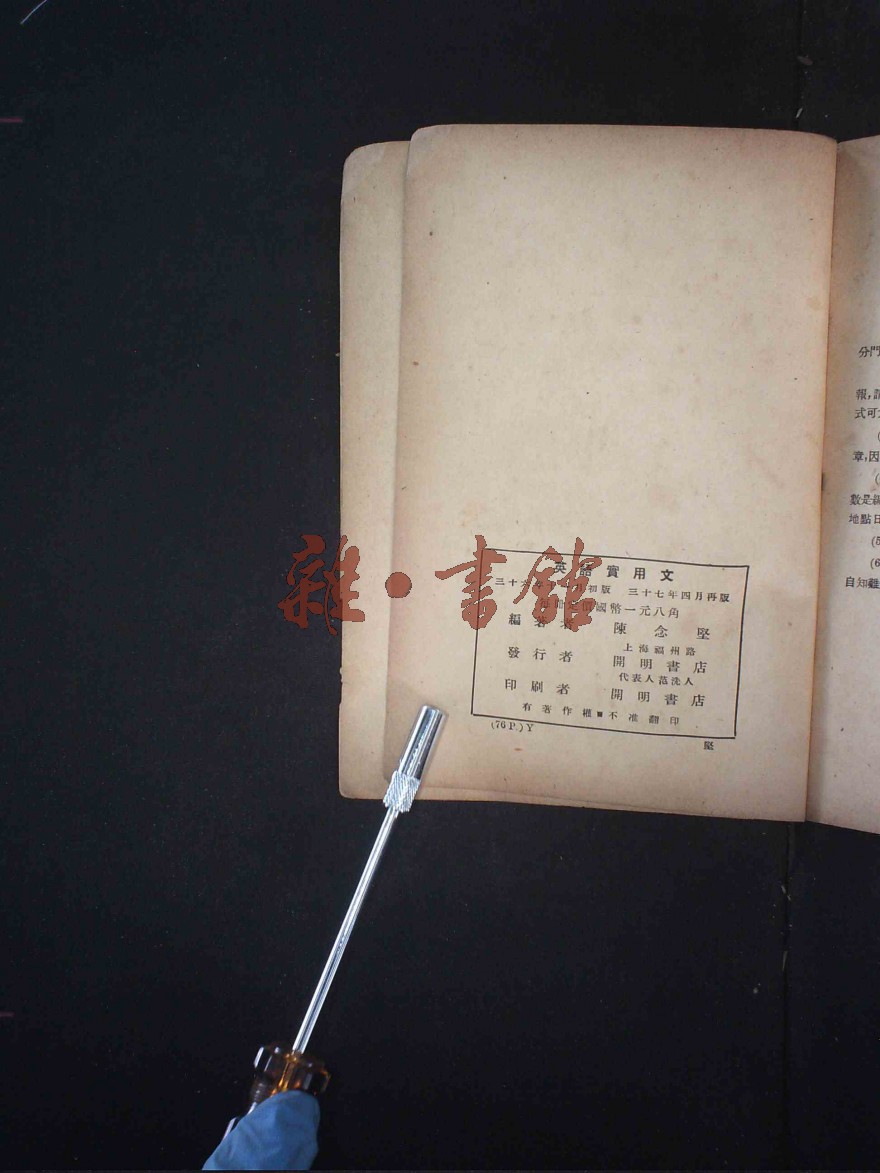 雜·書館
英語實用文
三十六年十 月初版 三十七年四月再版
每冊定價國幣一元八角
編著者 陳念堅
發行者 上海福州路
開明書店
代表人范洗人
印刷者 開明書店
有著作權■不准翻印
(76 P.) Y
堅
分門
報,請
式可
(
章,因
(
數是
地點日
(5
(6
自知難